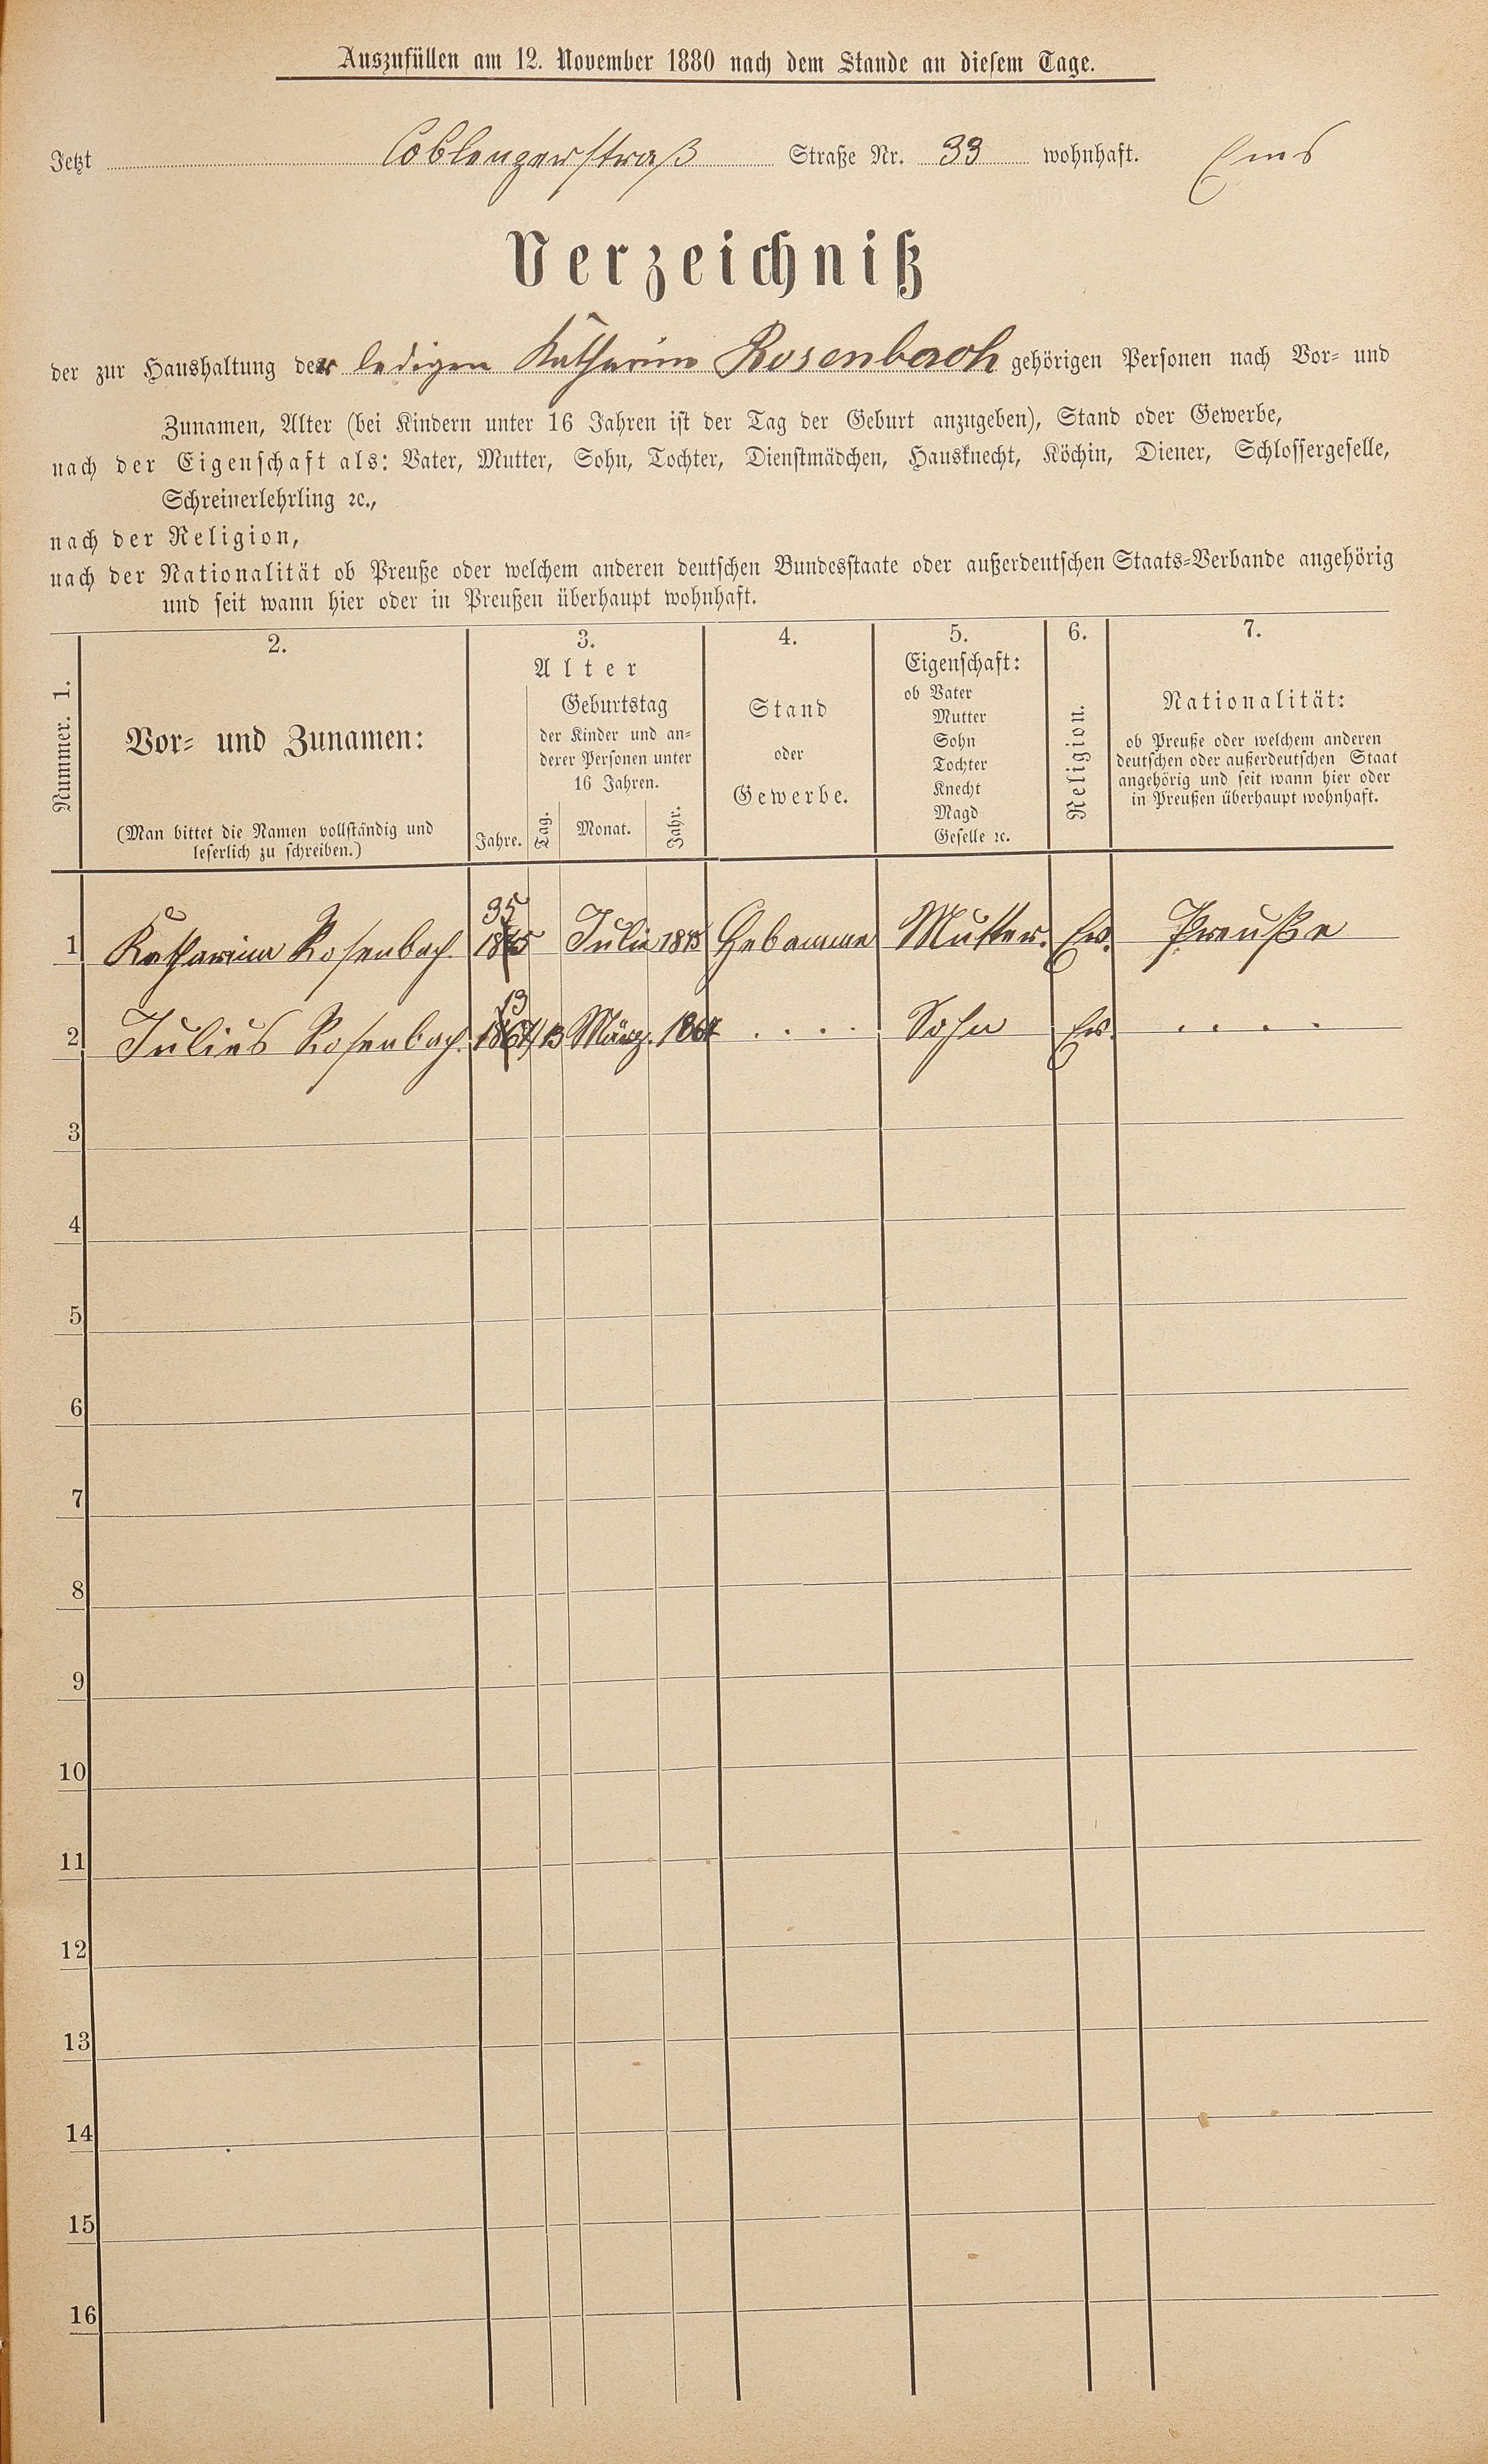 Auszufüllen am 12. November 1880 nach dem Stande an diesem Tage.
Jetzt Coblenzerstraß Straße Nr. 33 wohnhaft. Ems
Verzeichniß
der zur Haushaltung der ledigen Katharina Rosenbach gehörigen Personen nach Vor- und
Zunamen, Alter (bei Kindern unter 16 Jahren ist der Tag der Geburt anzugeben), Stand oder Gewerbe,
nach der Eigenschaft als: Vater, Mutter, Sohn, Tochter, Dienstmädchen, Hausknecht, Köchin, Diener, Schlossergeselle,
Schreinerlehrling ꝛc.,
nach der Religion,
nach der Nationalität ob Preuße oder welchem anderen deutschen Bundesstaate oder außerdeutschen Staats-Verbande angehörig
und seit wann hier oder in Preußen überhaupt wohnhaft.
Nummer. 1.
2.
Vor- und Zunamen:
(Man bittet die Namen vollständig und
leserlich zu schreiben.)
3.
Alter
Jahre.
Geburtstag
der Kinder und an-
derer Personen unter
16 Jahren.
Tag. Monat. Jahr.
4.
Stand
oder
Gewerbe.
5.
Eigenschaft:
ob Vater
Mutter
Sohn
Tochter
Knecht
Magd
Geselle ꝛc.
6.
Religion.
7.
Nationalität:
ob Preuße oder welchem anderen
deutschen oder außerdeutschen Staat
angehörig und seit wann hier oder
in Preußen überhaupt wohnhaft.
35
1 Katharina Rosenbach. 1845 Julie 1845 Hebamme Mutter. Ev. Preuße
13
2 Julius Rosenbach. 1867 13 März. 1867 . . . . Sohn Ev. . . . .
3
4
5
6
7
8
9
10
11
12
13
14
15
16